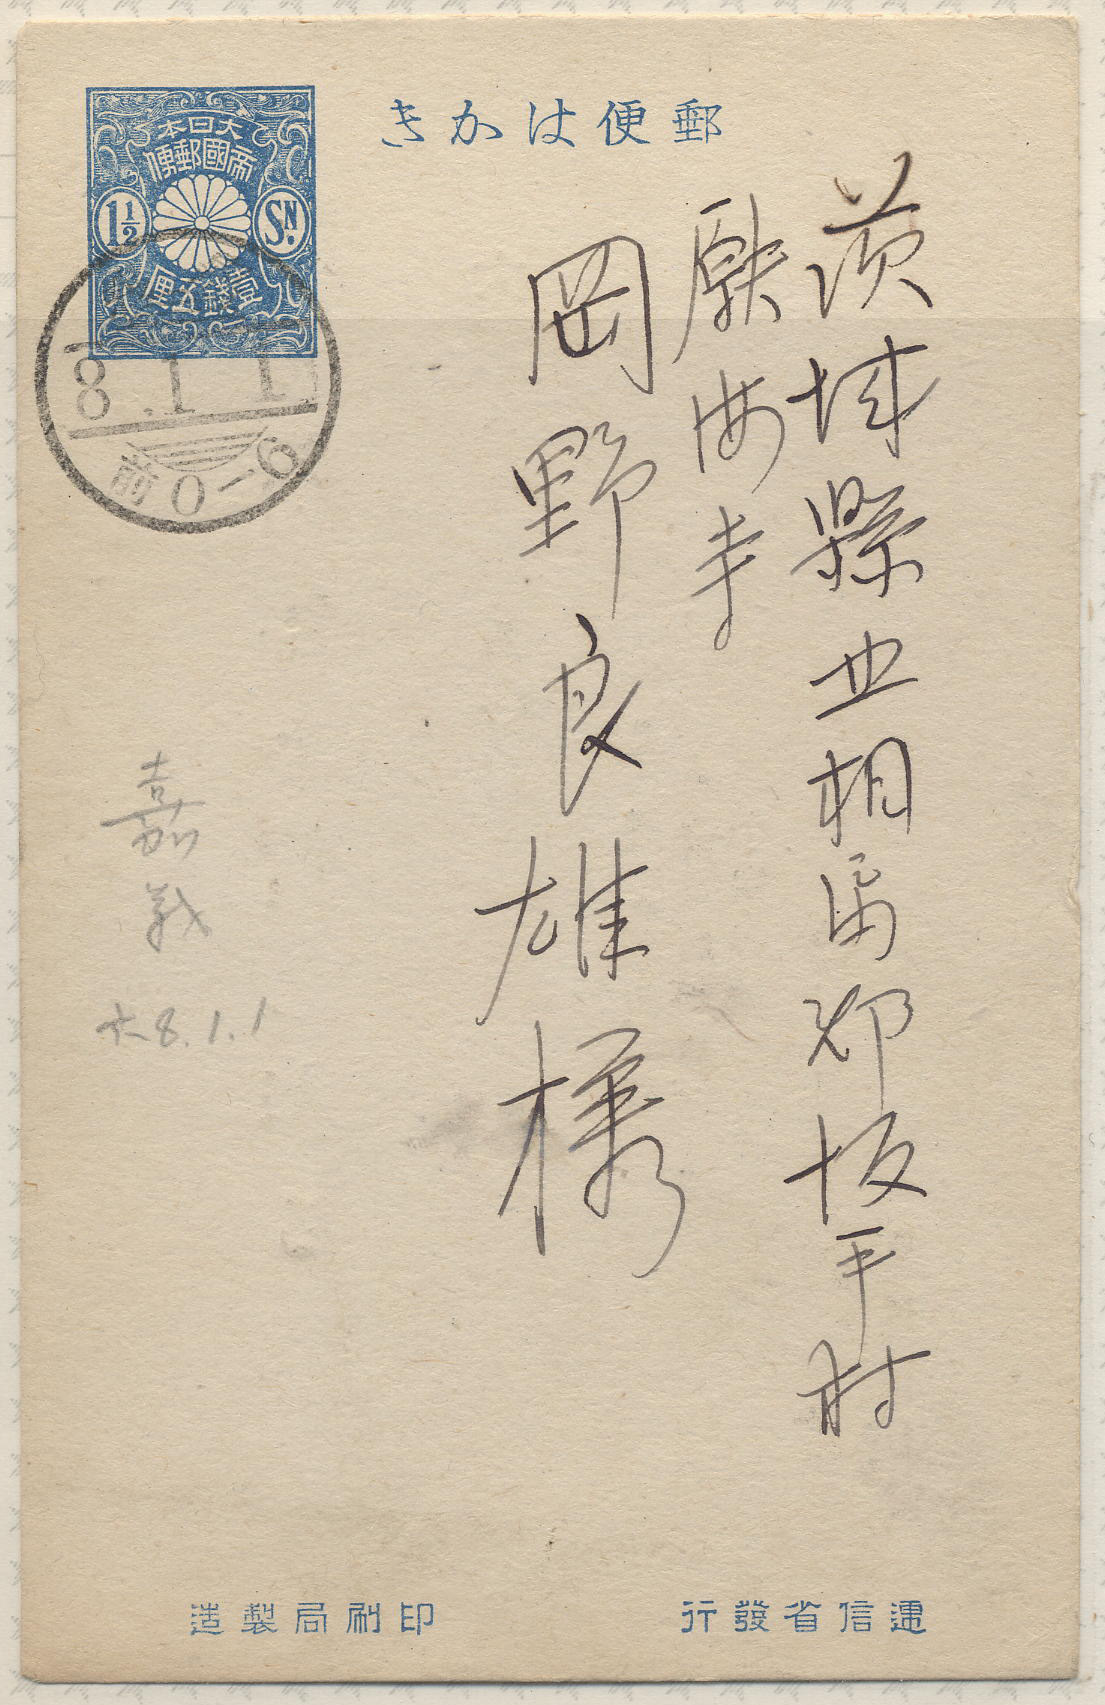 郵便はかき
大日本
帝國郵便
1½ SN.
壹錢五厘
8.1.1
前0-6
茨城縣北相馬郡坂手村
岡野良雄様
嘉義
大8.1.1
遞信省發行
印刷局製造